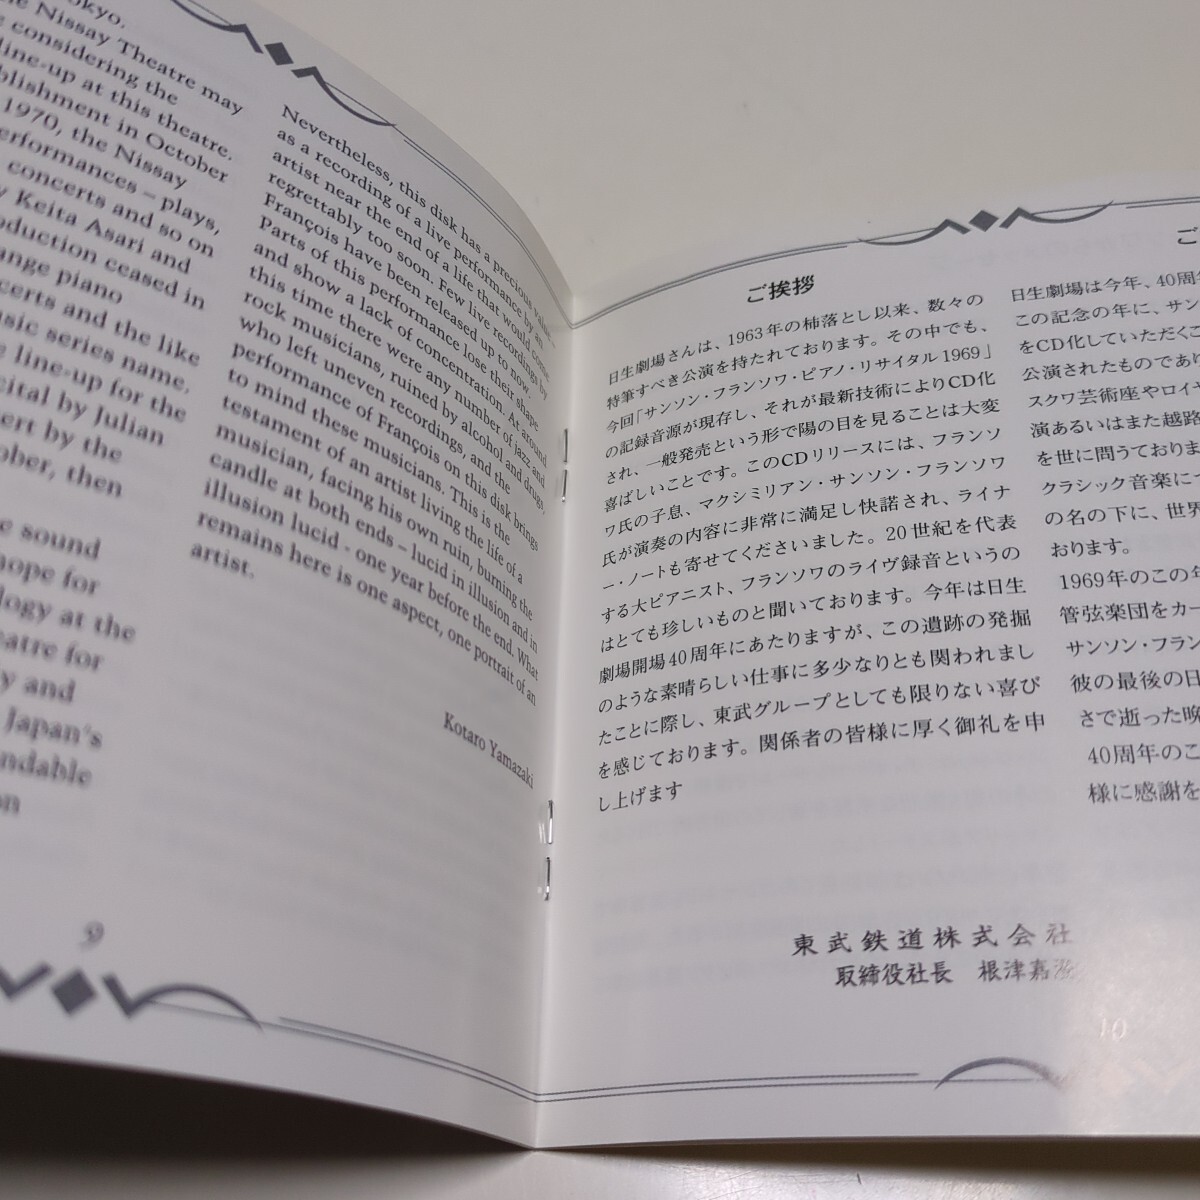 okyo.
the Nissay Theatre may
considering the
line-up at this theatre.
blishment in October
1970, the Nissay
performances – plays,
concerts and so on
Keita Asari and
oduction ceased in
ange piano
certs and the like
usic series name.
line-up for the
cital by Julian
ert by the
ober, then
sound
hope for
logy at the
eatre for
y and
Japan's
endable
on
9
Nevertheless, this disk has a precious value,
as a recording of a live performance by an
artist near the end of a life that would come
regrettably too soon. Few live recordings by
François have been released up to now.
Parts of this performance lose their shape
and show a lack of concentration. At around
this time there were any number of jazz and
rock musicians, ruined by alcohol and drugs,
who left uneven recordings, and the
performance of François on this disk brings
to mind these musicians. This is the
testament of an artist living the life of a
musician, facing his own ruin, burning the
candle at both ends – lucid in illusion and in
illusion lucid - one year before the end. What
remains here is one aspect, one portrait of an
artist.
Kotaro Yamazaki
ご挨拶
日生劇場さんは、1963年の柿落とし以来、数々の
特筆すべき公演を持たれております。その中でも、
今回「サンソン・フランソワ・ピアノ・リサイタル1969」
の記録音源が現存し、それが最新技術によりCD化
され、一般発売という形で陽の目を見ることは大変
喜ばしいことです。このCDリリースには、フランソ
ワ氏の子息、マクシミリアン・サンソン・フランソワ
氏が演奏の内容に非常に満足し快諾され、ライナ
ー・ノートも寄せてくださいました。20世紀を代表
する大ピアニスト、フランソワのライヴ録音というの
はとても珍しいものと聞いております。今年は日生
劇場開場40周年にあたりますが、この遺跡の発掘
のような素晴らしい仕事に多少なりとも関われまし
たことに際し、東武グループとしても限りない喜び
を感じております。関係者の皆様に厚く御礼を申
し上げます
東武鉄道株式会社
取締役社長 根津嘉澄
10
ご
日生劇場は今年、40周年
この記念の年に、サン
をCD化していただくこ
公演されたものであり
スクワ芸術座やロイヤ
演あるいはまた越路
を世に問うておりま
クラシック音楽に
の名の下に、世界
おります。
1969年のこの年
管弦楽団をカー
サンソン・フラン
彼の最後の日
さで逝った晩
40周年のこ
様に感謝を